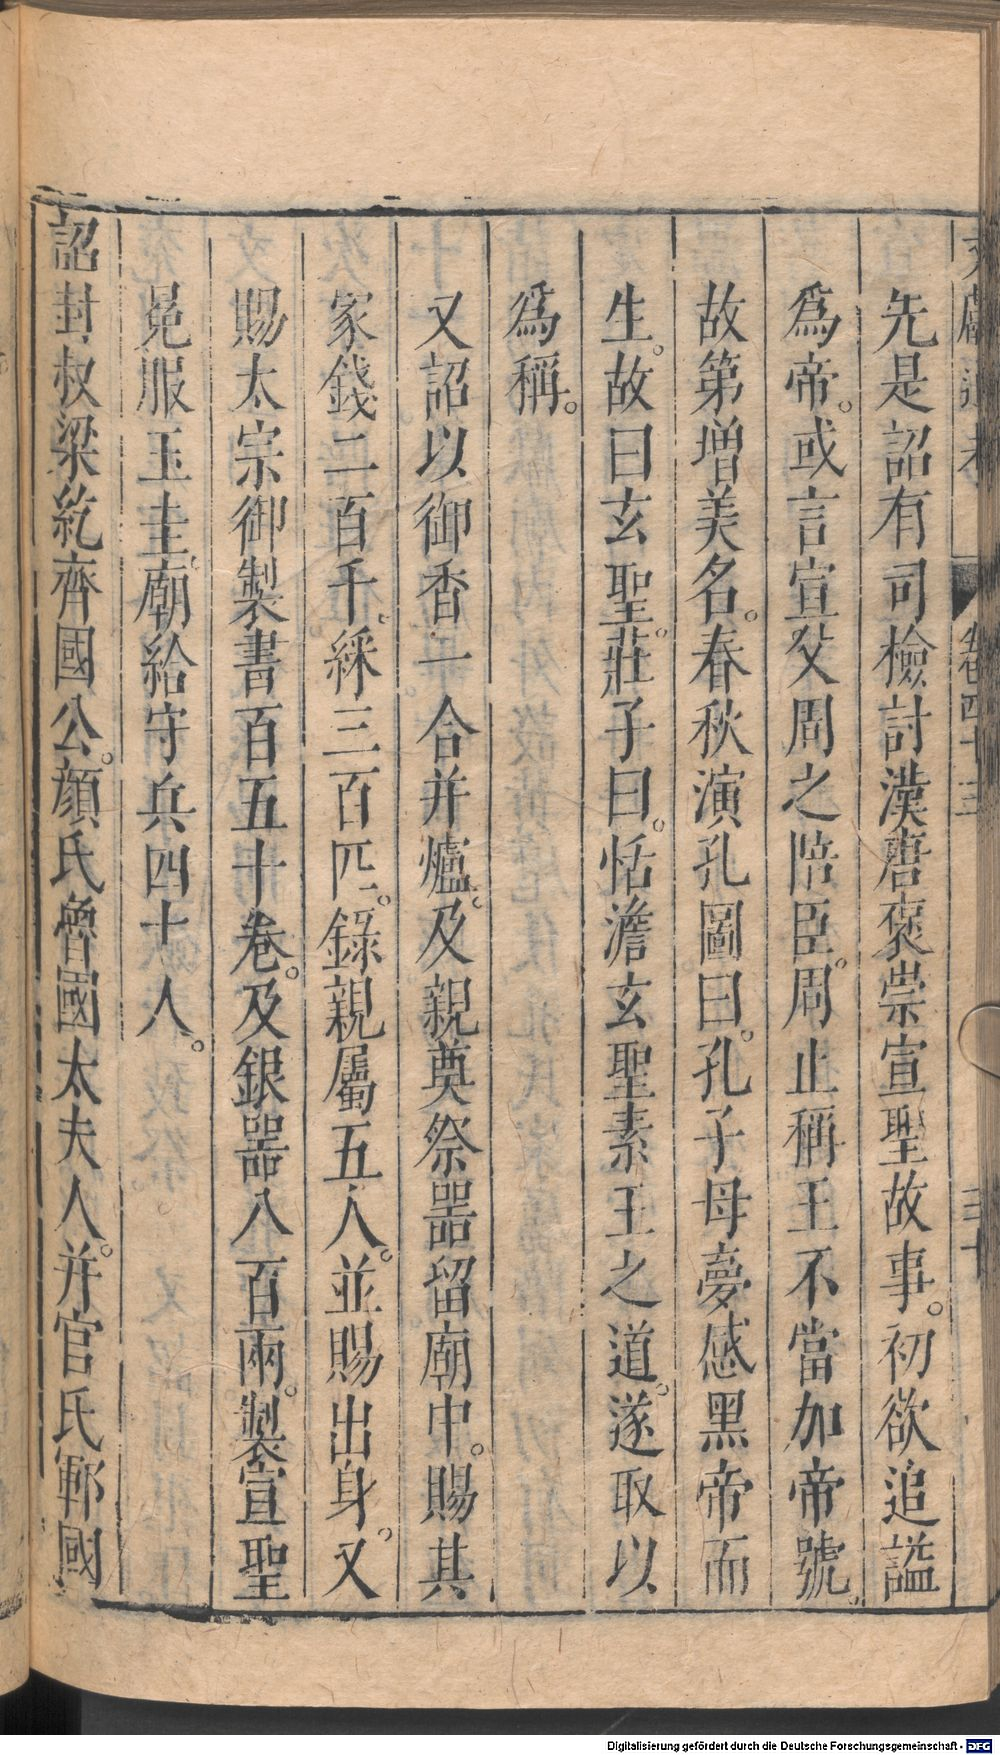 文獻通考 卷四十三 三十
先是詔有司檢討漢唐褒崇宣聖故事。初欲追謚
爲帝。或言宣父周之陪臣。周止稱王不當加帝號。
故第增美名。春秋演孔圖曰。孔子母夢感黑帝而
生。故曰玄聖。莊子曰。恬澹玄聖素王之道。遂取以
爲稱。
又詔以御香一合并爐。及親奠祭器留廟中。賜其
家錢二百千。綵三百匹。錄親屬五人。並賜出身。又
賜太宗御製書百五十卷。及銀器八百兩。製宣聖
冕服玉圭。廟給守兵四十人。
詔封叔梁紇齊國公。顔氏魯國太夫人。并官氏鄆國
Digitalisierung gefördert durch die Deutsche Forschungsgemeinschaft - DFG